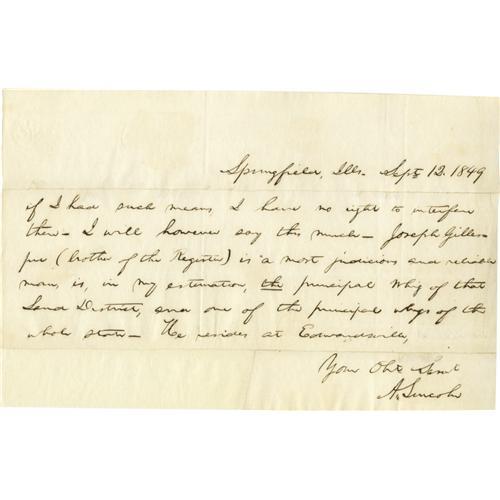 Springfield, Ills. Sept 12. 1849
if I had such means, I have no right to interfere
there – I will however say this much – Joseph Gilles-
pie (brother of the Register) is a most judicious and reliable
man, is, in my estimation, the principal Whig of that
Land District, and one of the principal whigs of the
whole state – He resides at Edwardsville,
Your Obt Servt
A. Lincoln